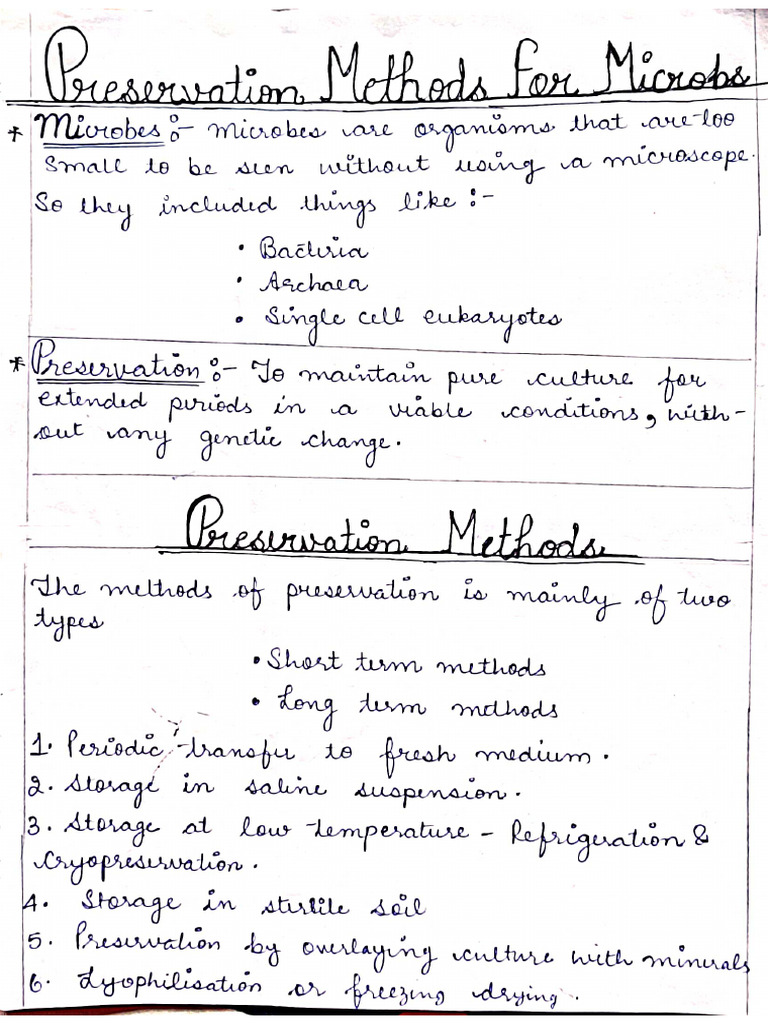 Preservation Methods for Microbs
* Microbes :- microbes are organisms that are too
small to be seen without using a microscope.
So they included things like :-
• Bacteria
• Archaea
• Single cell eukaryotes
* Preservation :- To maintain pure culture for
extended periods in a viable conditions, with-
out any genetic change.
Preservation Methods
The methods of preservation is mainly of two
types
• Short term methods
• Long term methods
1. Periodic transfer to fresh medium.
2. Storage in saline suspension.
3. Storage at low temperature - Refrigeration &
cryopreservation.
4. Storage in sterile soil
5. Preservation by overlaying culture with minerals
6. Lyophilisation or freezing drying.